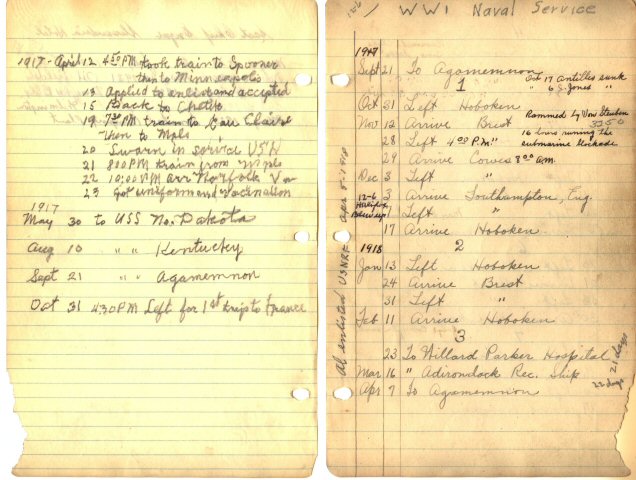 1917 - April 12 4:50 PM took train to Spooner
then to Minneapolis
13 Applied to enlist and accepted
15 Back to Chetek
19 7:30 PM train to Eau Claire
then to Mpls
20 Sworn in service USN
21 8:00 PM train from Mpls
22 10:00 PM arr Norfolk Va
23 Got uniform and vaccination
1917
May 30 to USS No. Dakota
Aug 10 " " Kentucky
Sept 21 " " Agamemnon
Oct 31 4:30 PM Left for 1st trip to France
12-6 / WW1 Naval Service
1917
Sept 21 To Agamemnon
Oct 17 Antilles sunk
1 " 6 J. Jones "
Oct 31 Left Hoboken
Rammed by Von Steuben
Nov 12 Arrive Brest
3350
28 Left 4:00 P.M. "
16 hours runing the
submarine blockade
29 Arrive Cowes 8:00 a.m.
Dec 3 Left "
12-6 3 Arrive Southampton, Eng.
Halifax
Blew up Left "
17 Arrive Hoboken
1918 2
Jan 13 Left Hoboken
24 Arrive Brest
31 Left "
Feb 11 Arrive Hoboken
3
23 To Willard Parker Hospital
21 days
Mar 16 " Adirondack Rec. Ship
22 days
Apr 7 To Agamemnon
Al enlisted USNRF apr 5-1918